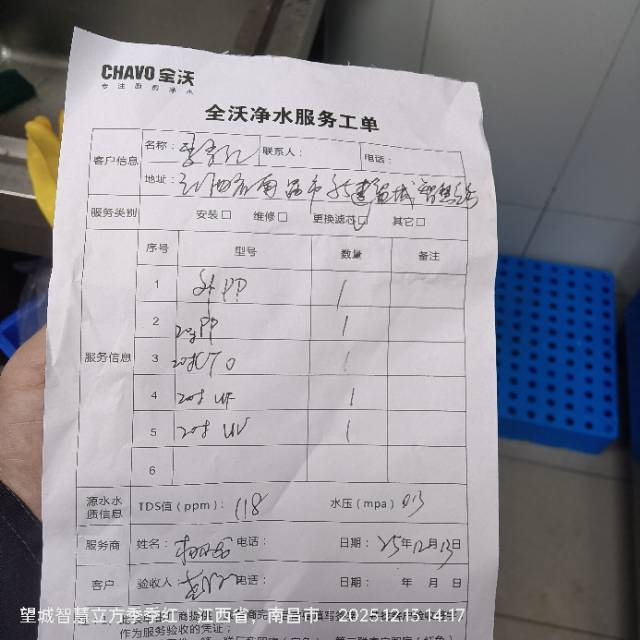 CHAVO 全沃
专注商用净水
全沃净水服务工单
客户信息 名称: 联系人: 电话:
地址: 江西省南昌市新建望城智慧
服务类别 安装□ 维修□ 更换滤芯□ 其它□
服务信息 序号 型号 数量 备注
1 PP 1
2 20寸PP 1
3 20寸CTO 1
4 20寸 UF 1
5 20寸 UV 1
6
源水水质信息 TDS值(ppm): 118 水压(mpa) 0.3
服务商 姓名: 电话: 日期: 25年12月13日
客户 验收人 电话: 日期: 年 月 日
作为服务验收的凭证;
望城智慧立方季季红 · 江西省, 南昌市 2025.12.13 14:17